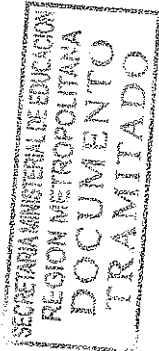 SECRETARIA MINISTERIAL DE EDUCACION
REGION METROPOLITANA
DOCUMENTO
TRAMITADO